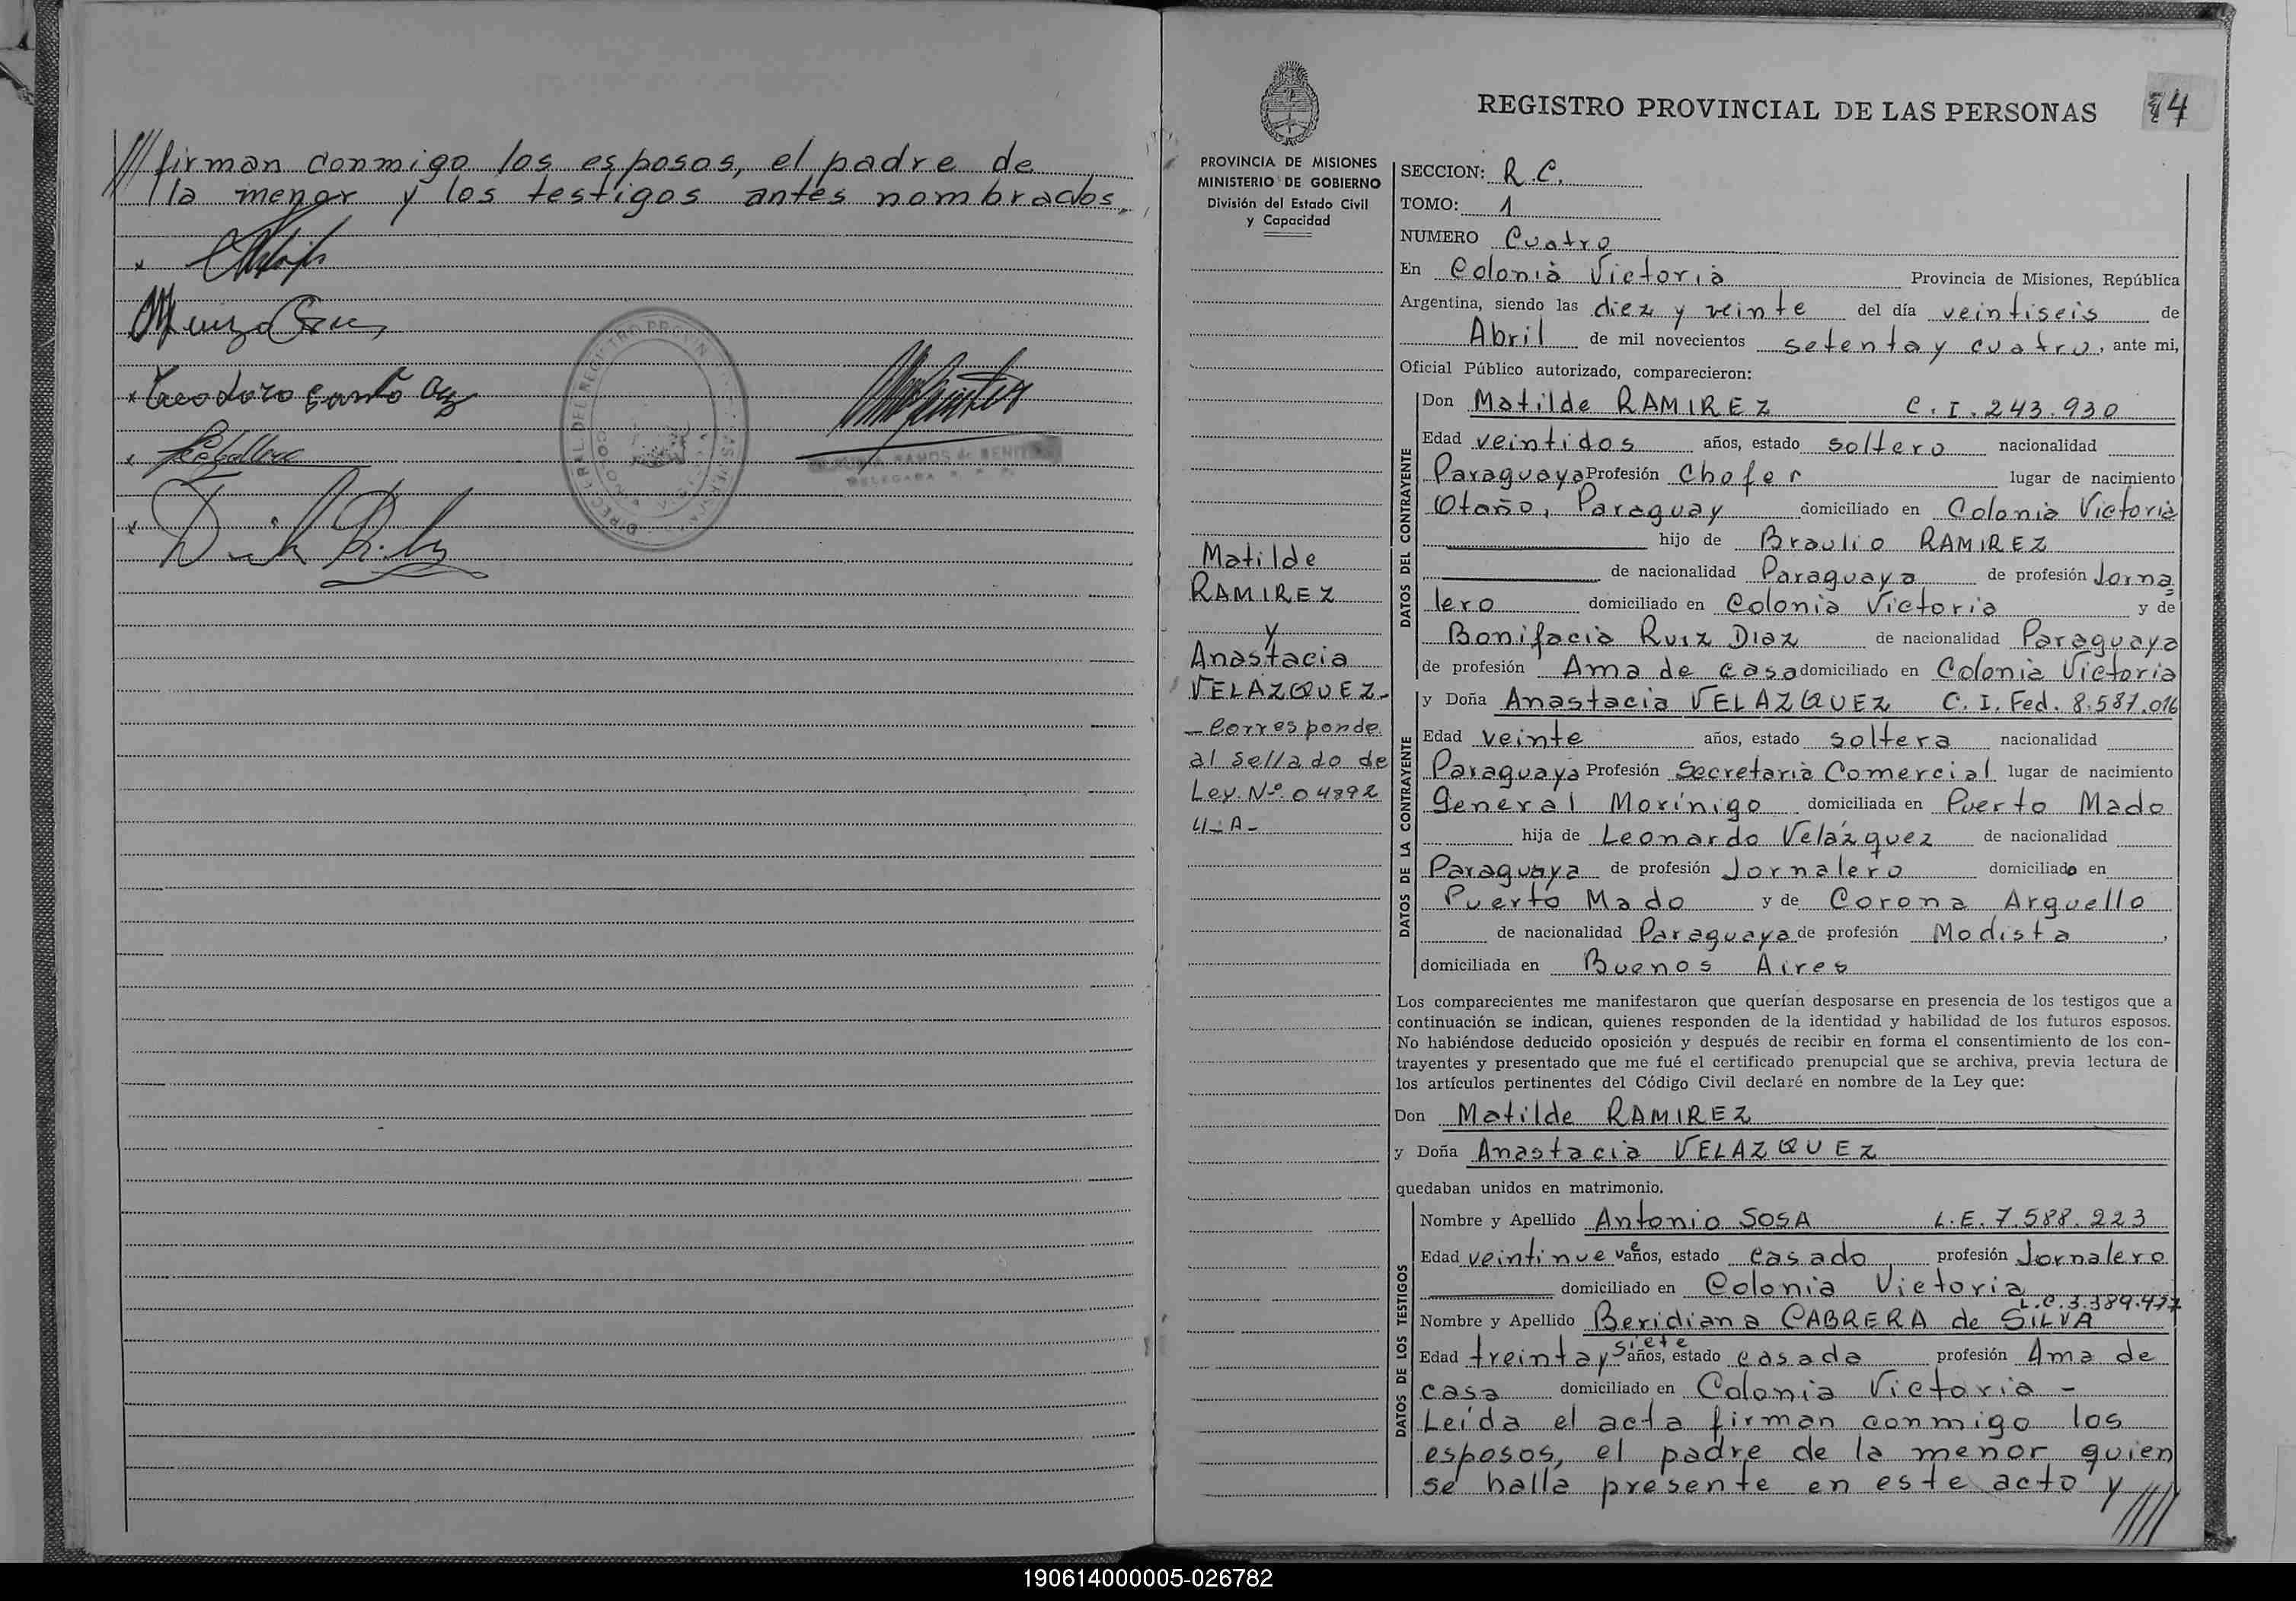 /// firman conmigo los esposos, el padre de
la menor y los testigos antes nombrados.
Teodoro
REGISTRO PROVINCIAL DE LAS PERSONAS
PROVINCIA DE MISIONES
MINISTERIO DE GOBIERNO
División del Estado Civil
y Capacidad
SECCION: R.C.
TOMO: 1
NUMERO Cuatro
En Colonia Victoria Provincia de Misiones, República
Argentina, siendo las diez y veinte del día veintiseis de
Abril de mil novecientos setenta y cuatro, ante mi,
Oficial Público autorizado, comparecieron:
DATOS DEL CONTRAYENTE
Don Matilde RAMIREZ C.I. 243.930
Edad veintidos años, estado soltero nacionalidad
Paraguaya Profesión Chofer lugar de nacimiento
Otaño, Paraguay domiciliado en Colonia Victoria
hijo de Braulio RAMIREZ
de nacionalidad Paraguaya de profesión Jorna
lero domiciliado en Colonia Victoria y de
Bonifacia Ruiz Diaz de nacionalidad Paraguaya
de profesión Ama de casa domiciliado en Colonia Victoria
Matilde
RAMIREZ
y
Anastacia
VELAZQUEZ-
- Corresponde
al sellado de
Ley. Nº 04892
4-A-
DATOS DE LA CONTRAYENTE
y Doña Anastacia VELAZQUEZ C. I. Fed. 8.587.016
Edad veinte años, estado soltera nacionalidad
Paraguaya Profesión Secretaria Comercial lugar de nacimiento
General Morínigo domiciliada en Puerto Mado
hija de Leonardo Velázquez de nacionalidad
Paraguaya de profesión Jornalero domiciliado en
Puerto Mado y de Corona Arguello
de nacionalidad Paraguaya de profesión Modista,
domiciliada en Buenos Aires
Los comparecientes me manifestaron que querían desposarse en presencia de los testigos que a
continuación se indican, quienes responden de la identidad y habilidad de los futuros esposos.
No habiéndose deducido oposición y después de recibir en forma el consentimiento de los con-
trayentes y presentado que me fué el certificado prenupcial que se archiva, previa lectura de
los artículos pertinentes del Código Civil declaré en nombre de la Ley que:
Don Matilde RAMIREZ
y Doña Anastacia VELAZQUEZ
quedaban unidos en matrimonio.
DATOS DE LOS TESTIGOS
Nombre y Apellido Antonio SOSA L.E. 7.588.223
Edad veintinueve años, estado casado profesión Jornalero
domiciliado en Colonia Victoria
L.C. 3.389.477
Nombre y Apellido Beridiana CABRERA de SILVA
Edad treinta y siete años, estado casada profesión Ama de
casa domiciliado en Colonia Victoria -
Leída el acta firman conmigo los
esposos, el padre de la menor quien
se halla presente en este acto y ////
190614000005-026782